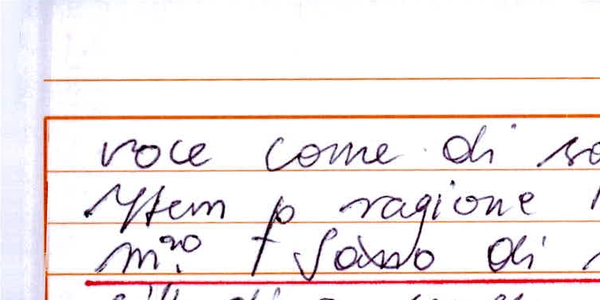 voce come di
Ytem p ragione
m.ro † Sasso di